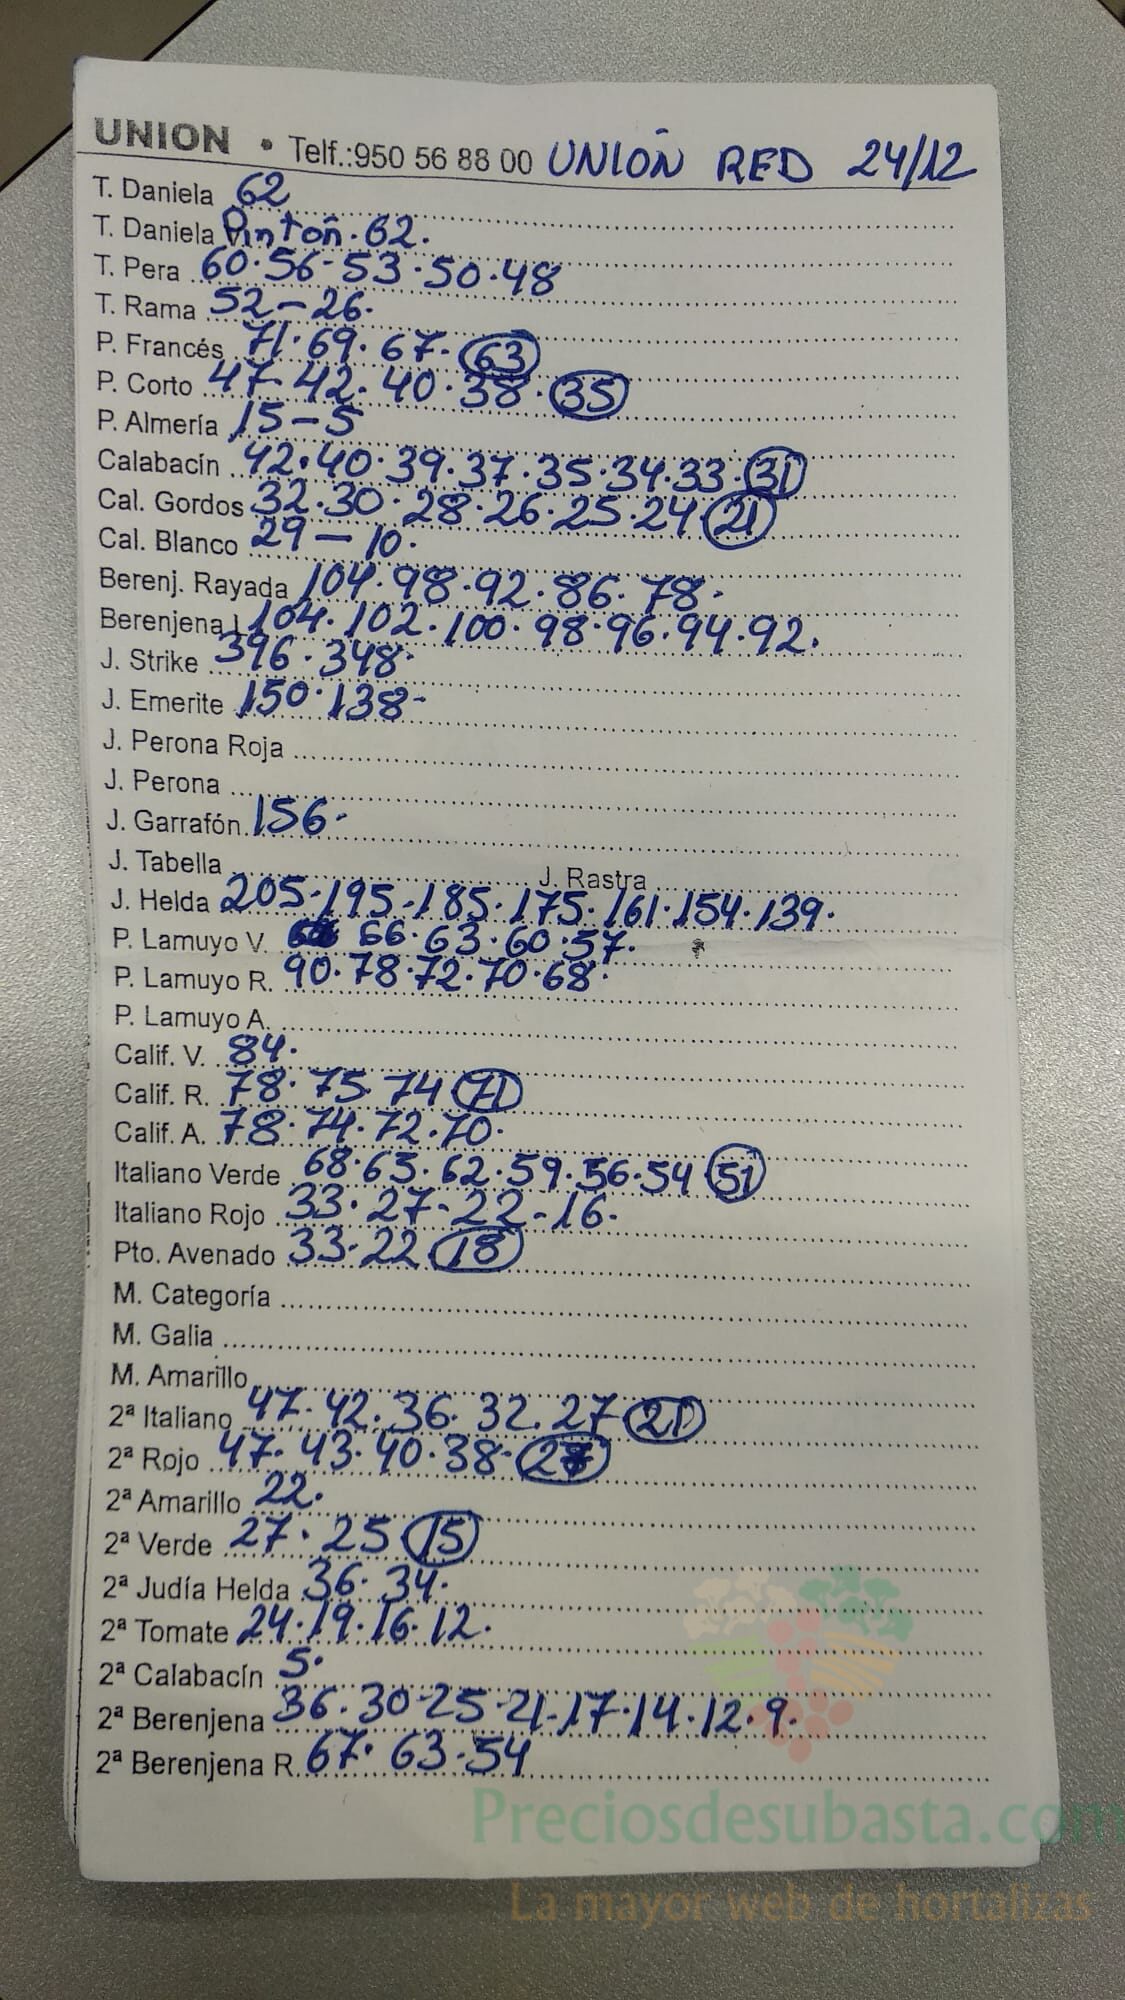 UNION • Telf.:950 56 88 00 UNIOÑ RED 24/12
T. Daniela 62
T. Daniela Pintoñ. 62.
T. Pera 60.56-53.50.48
T. Rama 52-26.
P. Francés 71.69.67. 63
P. Corto 47-42.40.38. 35
P. Almería 15-5
Calabacín 42.40.39.37.35.34.33. 31
Cal. Gordos 32.30.28.26.25.24. 21
Cal. Blanco 29-10.
Berenj. Rayada 104.98.92.86.78.
Berenjena L 104.102.100.98.96.94.92.
J. Strike 396.348.
J. Emerite 150.138-
J. Perona Roja
J. Perona
J. Garrafón 156.
J. Tabella J. Rastra
J. Helda 205.195-185.175.161.154.139.
P. Lamuyo V. 66.63.60.57.
P. Lamuyo R. 90.78.72.70.68.
P. Lamuyo A.
Calif. V. 84.
Calif. R. 78.75.74 71
Calif. A. 78.74.72.70.
Italiano Verde 68.65.62.59.56.54 51
Italiano Rojo 33.27-22-16.
Pto. Avenado 33.22 18
M. Categoría
M. Galia
M. Amarillo
2ª Italiano 47.42.36.32.27 21
2ª Rojo 47.43.40.38.
2ª Amarillo 22.
2ª Verde 27.25 15
2ª Judía Helda 36.34.
2ª Tomate 24.19.16.12.
2ª Calabacín 5.
2ª Berenjena 36.30-25-21.17.14.12.9.
2ª Berenjena R. 67.63.54
Preciosdesubasta.com
La mayor web de hortalizas